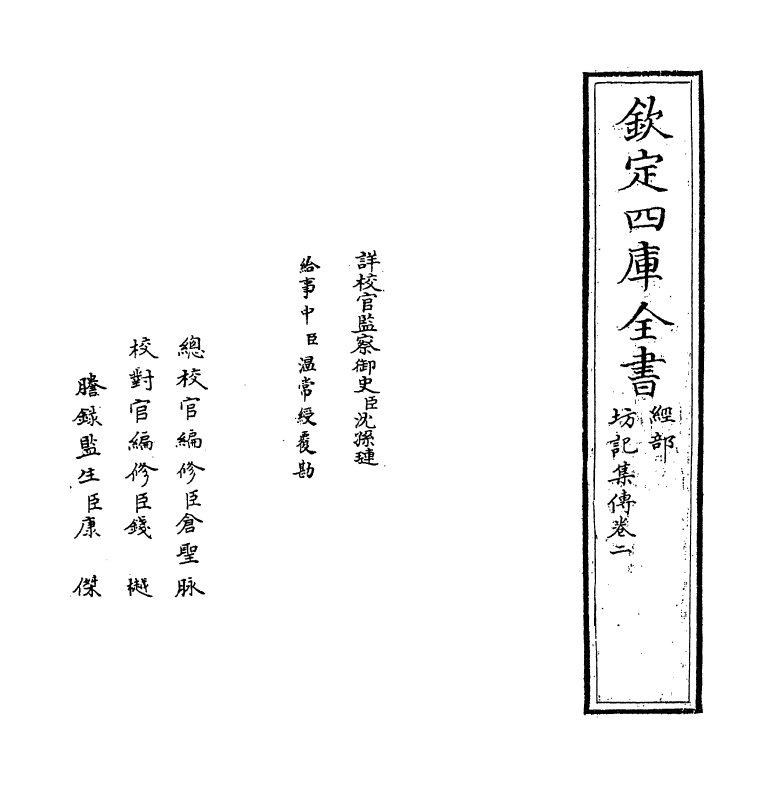 欽定四庫全書
經部
坊記集傳卷二
詳校官監察御史臣沈孫璉
給事中臣溫常綬覆勘
總校官編修臣倉聖脉
校對官編修臣錢樾
謄録監生臣康傑